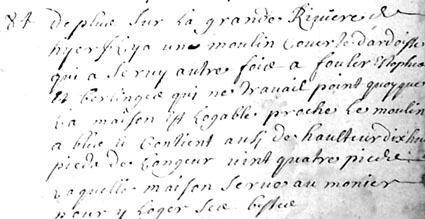 84 de plus sur la grande Riviere de
hyerf Lya un moulin Couvert dardoisse
qui a servy autre fois a fouler Estophes
Et berlinges qui ne travail point quoy que
La maison est Logable proche le moulin
a bled il Contient aussy de haulteur dix huit
pieds de Longeur vint quatre pieds
Laquelle maison serve au monier
pour y Loger ses bestes